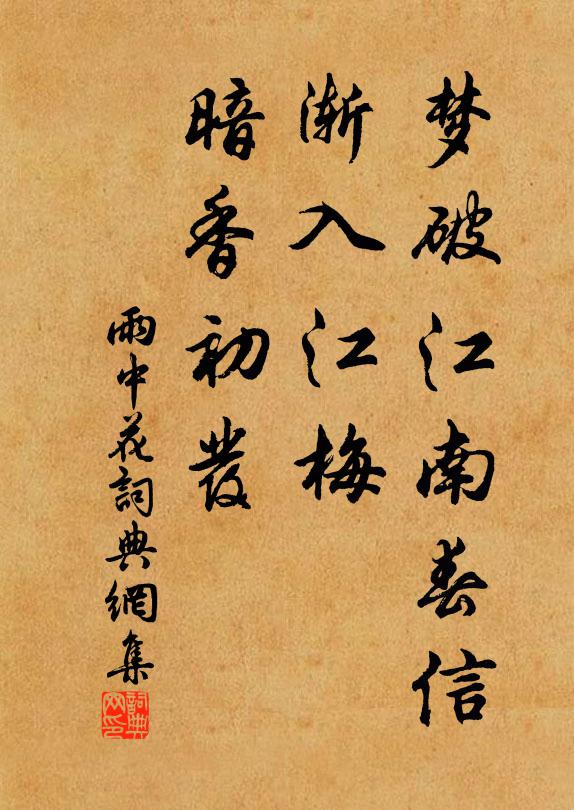 梦破江南春信
渐入江梅
暗香初發
雨中花詞典網集
詞典網印